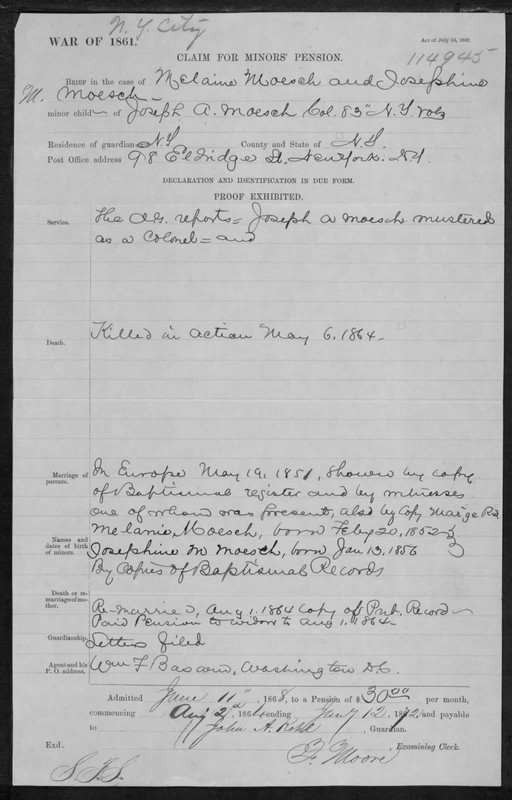 N. Y. City
WAR OF 1861.
Act of July 14, 1862.
CLAIM FOR MINORS' PENSION.
114945
BRIEF in the case of Melaine Moesch and Josephine
M. Moesch
minor child of Joseph A. Moesch Col. 83" N.Y. Vols
Residence of guardian N.Y County and State of N.Y.
Post Office address 98 Eldridge St, New York. N.Y.
DECLARATION AND IDENTIFICATION IN DUE FORM.
PROOF EXHIBITED.
Service. The A.G. reports = Joseph A Moesch mustered
as a Colonel = and
Death. Killed in action May 6, 1864
Marriage of parents. In Europe May 19, 1851, shown by copy
of Baptismal register and by witnesses
one of whom was present, also by Copy Marige Rd.
Names and dates of birth of minors. Melanie Moesch, born Feby 20, 1852
Josephine M Moesch, born Jan 13, 1856
By Copies of Baptismal Records
Death or re-marriage of mother. Re-married, Aug 1. 1864 Copy of Pub. Record
Paid Pension to widow to Aug 1. 1864
Guardianship. Letters filed
Agent and his P. O. address. Wm F Bascom, Washington D.C.
Admitted June 11", 1868, to a Pension of $30.00 per month,
commencing Aug 2d, 1864, ending Jany 12, 1872, and payable
to John A. , Guardian.
F. Moore Examining Clerk.
Exd.